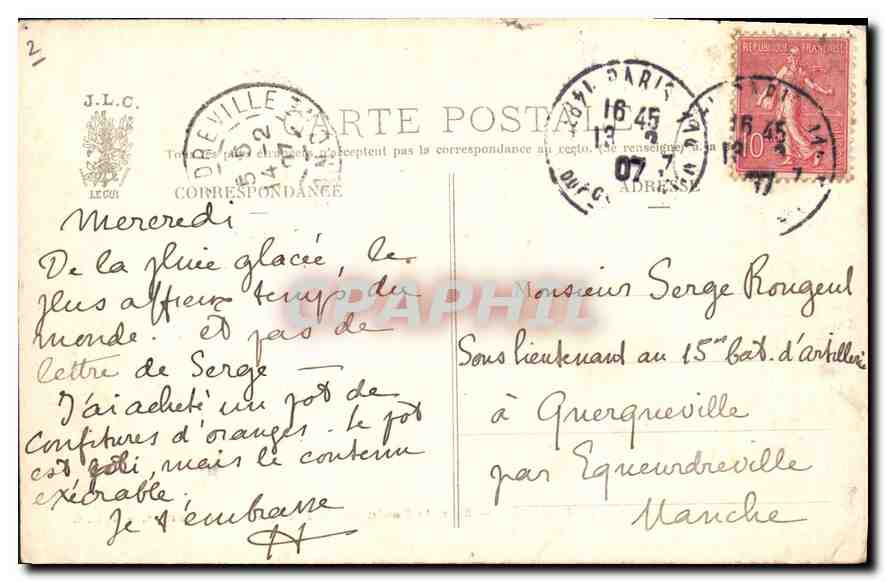 2
J.L.C.
LE GUI
CARTE POSTALE
Tous les pays étrangers n'acceptent pas la correspondance au recto. (Se renseigner à la
CORRESPONDANCE
ADRESSE
REPUBLIQUE FRANÇAISE
10
PARIS
16 45
13 2
07
16 45
13 2
07
DREVILLE
14-2
07
Mercredi
De la pluie glacée, le
plus affreux temps du
monde. Et pas de
lettre de Serge —
J'ai acheté un pot de
confitures d'oranges. Le pot
est joli, mais le contenu
exécrable.
Je t'embrasse
H
Monsieur Serge Rougeul
Sous lieutenant au 15me bat. d'artillerie
à Querqueville
par Equeurdreville
Manche
CPAPHIL